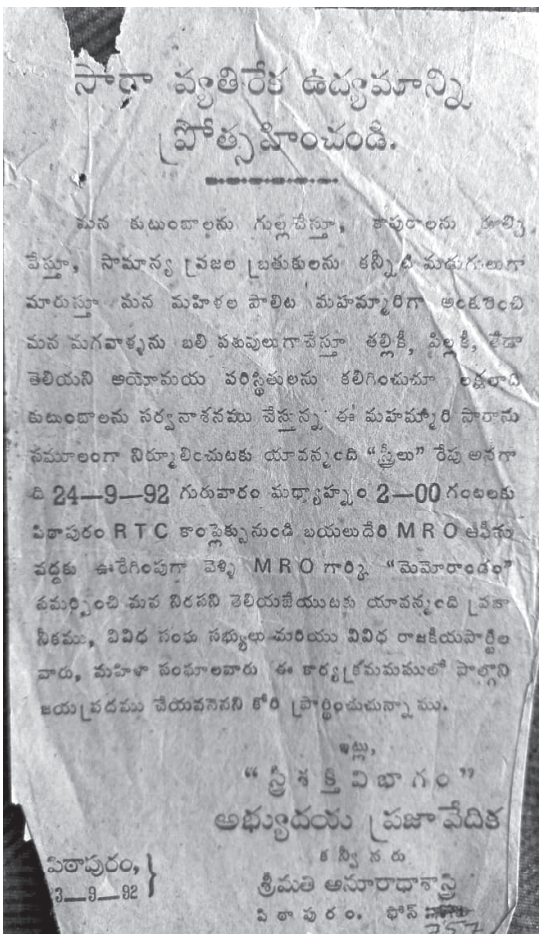 సారా వ్యతిరేక ఉద్యమాన్ని
ప్రోత్సహించండి.
మన కుటుంబాలను గుల్లచేస్తూ, కాపురాలను కూల్చి
వేస్తూ, సామాన్య ప్రజల బ్రతుకులను కన్నీటి మడుగులుగా
మారుస్తూ మన మహిళల పాలిట మహమ్మారిగా అంకురించి
మన మగవాళ్ళను బలి పశువులుగాచేస్తూ తల్లికీ, పిల్లకీ, తేడా
తెలియని అయోమయ పరిస్థితులను కలిగించుచూ లక్షలాది
కుటుంబాలను సర్వనాశనము చేస్తున్న ఈ మహమ్మారి సారాను
సమూలంగా నిర్మూలించుటకు యావన్మంది “స్త్రీలు” రేపు అనగా
ది 24—9—92 గురువారం మధ్యాహ్నం 2—00 గంటలకు
పిఠాపురం RTC కాంప్లెక్సునుండి బయలుదేరి MRO ఆఫీసు
వద్దకు ఊరేగింపుగా వెళ్ళి MRO గార్కి “మెమోరాండం”
సమర్పించి మన నిరసన తెలియజేయుటకు యావన్మంది ప్రజా
నీకము, వివిధ సంఘ సభ్యులు మరియు వివిధ రాజకీయపార్టీల
వారు, మహిళా సంఘాలవారు ఈ కార్యక్రమమములో పాల్గొని
జయప్రదము చేయవలెనని కోరి ప్రార్థించుచున్నాము.
ఇట్లు,
“స్త్రీ శక్తి విభాగం”
అభ్యుదయ ప్రజావేదిక
కన్వీనరు
శ్రీమతి అనూరాధాశాస్త్రి
పిఠాపురం. ఫోన్
పిఠాపురం,
3—9—92